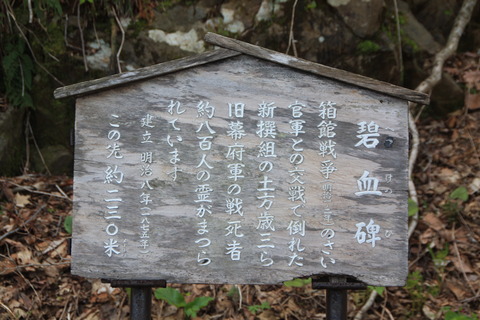 碧血碑
箱館戦争(明治二年)のさい
官軍との交戦で倒れた
新撰組の土方歳三ら
旧幕府軍の戦死者
約八百人の霊がまつら
れています
建立 明治八年(一八七五年)
この先約二三〇米